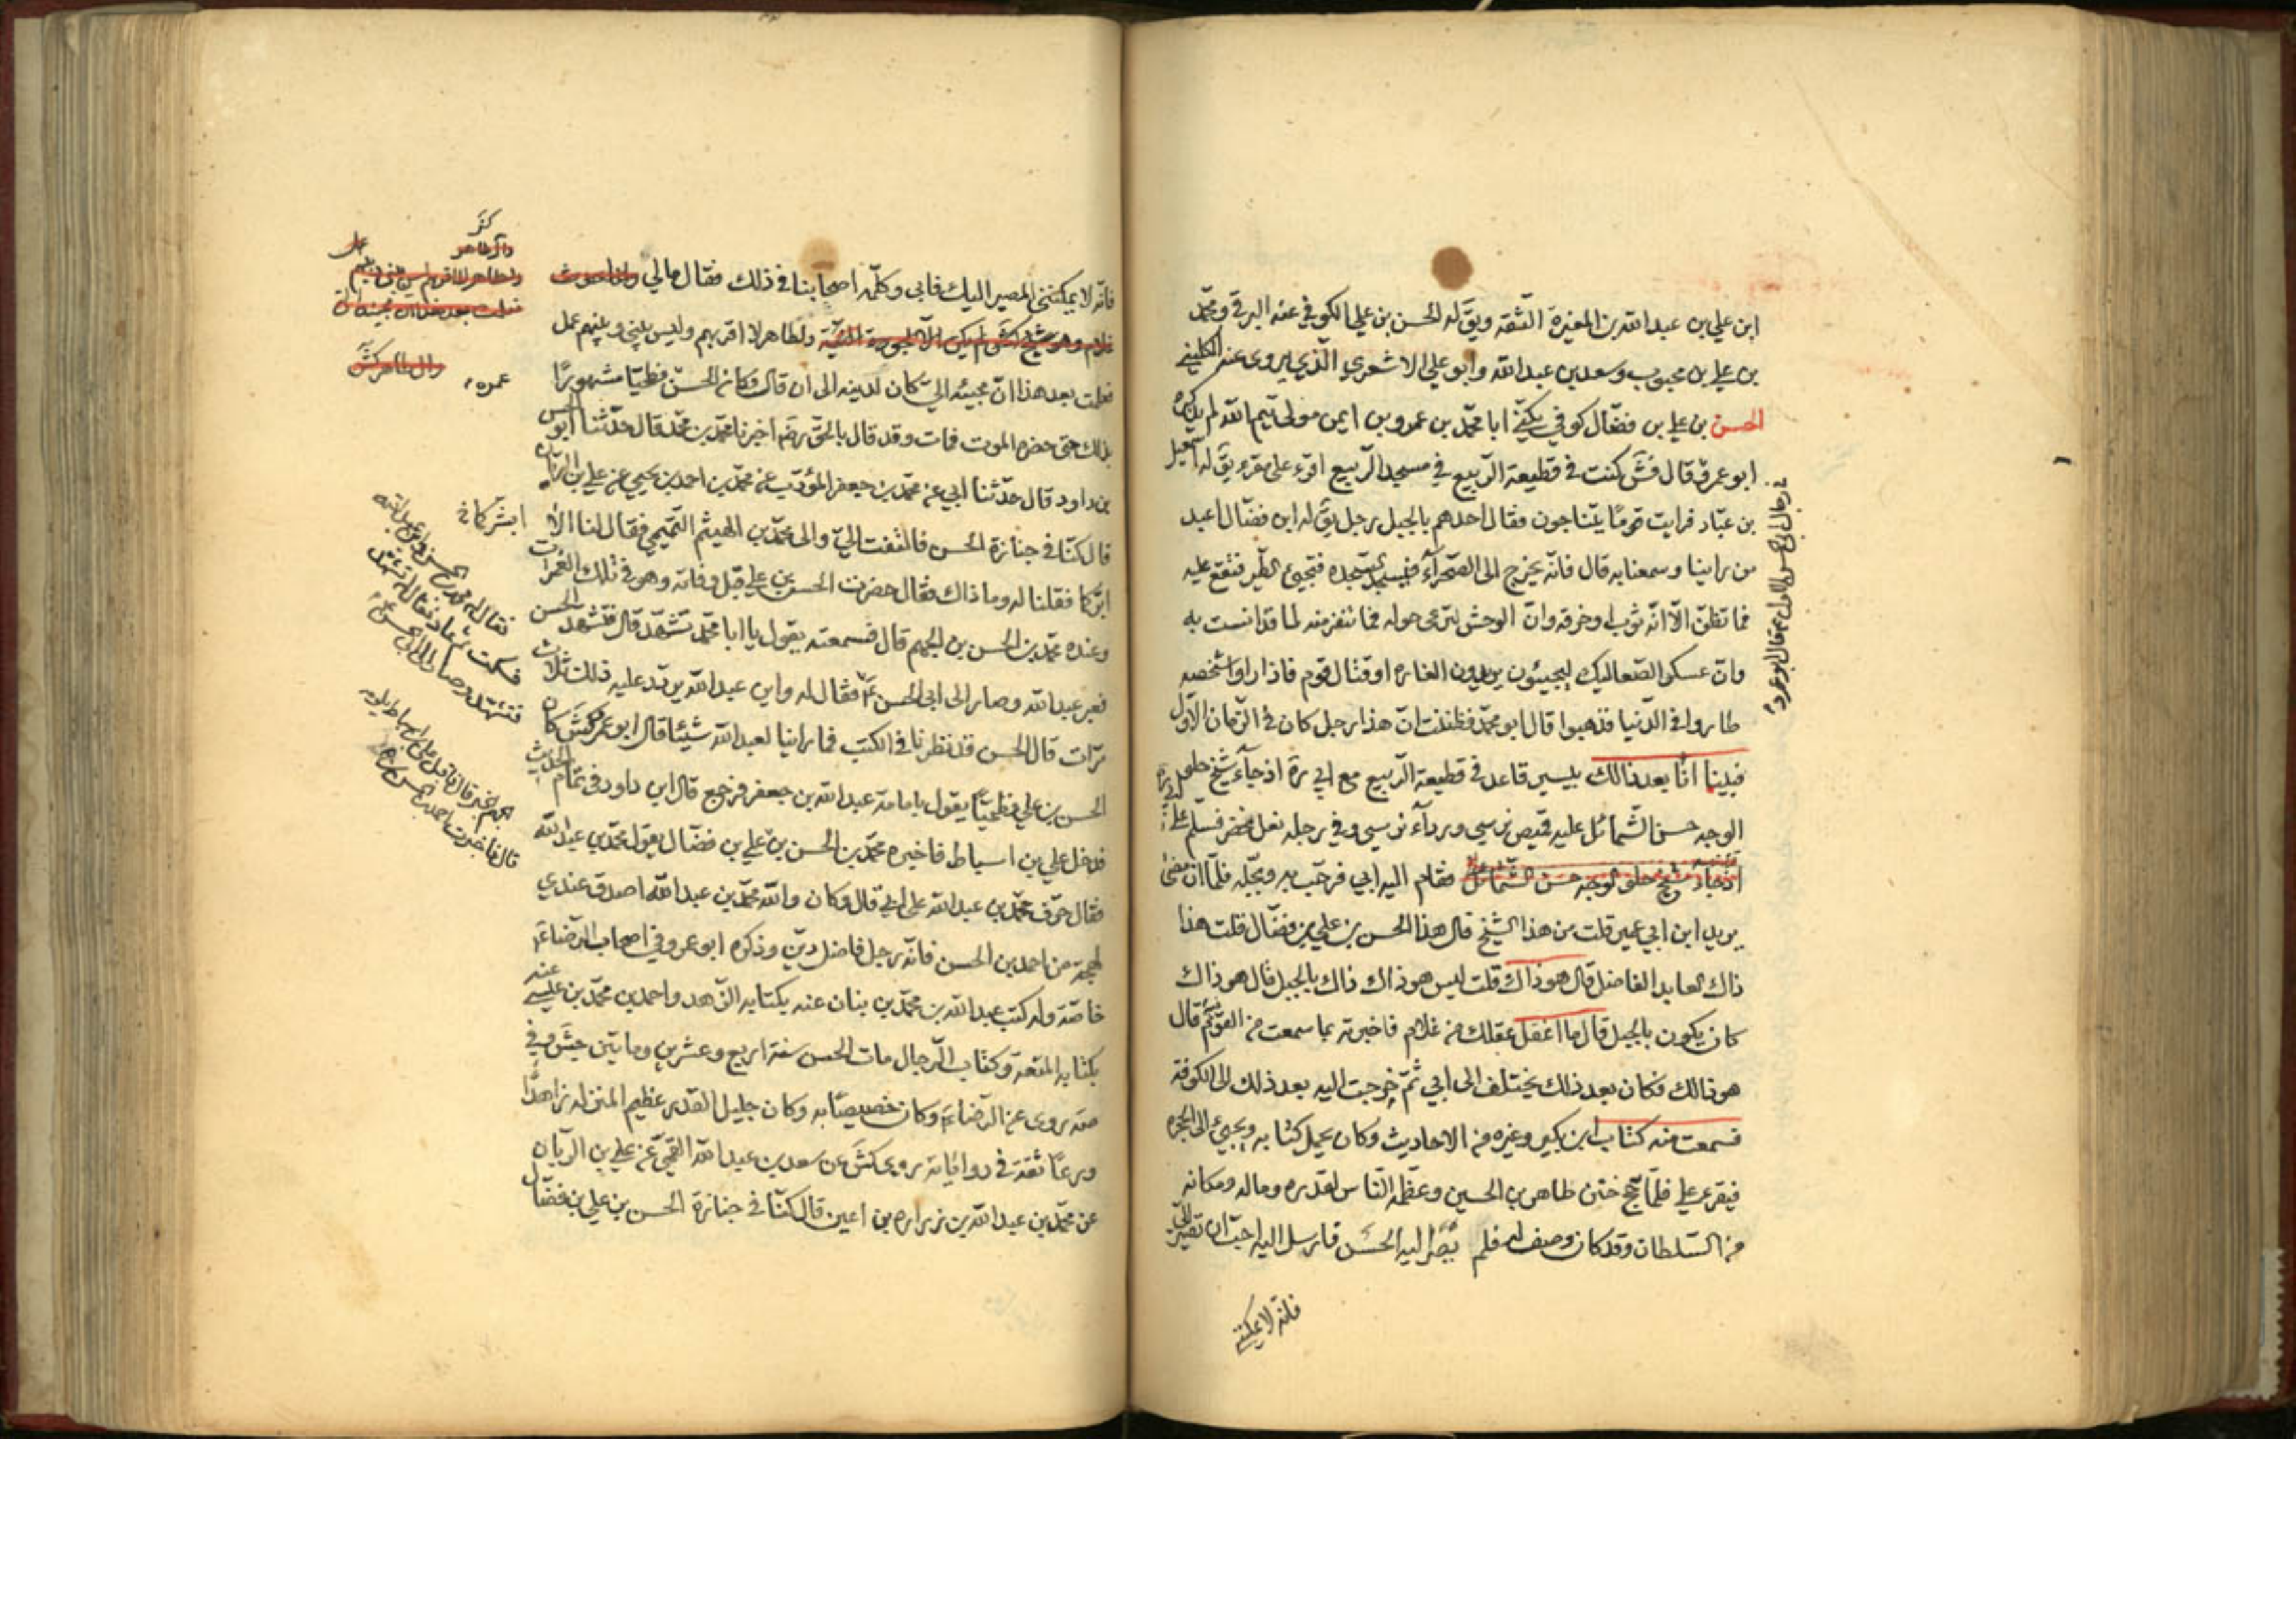 ابن علي بن عبد الله بن المغيرة الثقه ويق له الحسن بن علي الكوفي عنه البرقي ومحمد
بن علي بن محبوب وسعد بن عبد الله وابو علي الاشعري الذي يروى عنه الكليني
الحسن بن علي بن فضال كوفي يكنى ابا محمد بن عمرو بن ايمن مولى تيم الله لم يذكره
ابو عمرو قال فش كنت في قطيعة الربيع في مسجد الربيع اقرء على مقرء يق له اسمعيل
بن عباد فرايت قوما يتناجون فقال احدهم بالجبل رجل يق له ابن فضال اعبد
من راينا وسمعنا به قال فانه يخرج الى الصحرآء فيسجد السجده فتجيئ الطير فتقع عليه
فما تظن الا انه ثوب او خرقه وان الوحش لترعى حوله فما تنفر منه لما قد انست به
وان عسكر الصعاليك ليجيئون يريدون الغاره او قتال قوم فاذا راوا شخصه
طاروا في الدنيا فذهبوا قال ابو محمد فظننت ان هذا رجل كان في الزمان الاول
فبينا انا بعد ذالك بيسير قاعد في قطيعة الربيع مع ابي ره اذ جآء شيخ حلو
الوجه حسن الشمائل عليه قميص نرسي وردآء نرسي وفي رجله نعل مخصر فسلم على
اذ جآء شيخ حلو الوجه حسن الشمائل فقام اليه ابي فرحب به وبجله فلما ان مضى
يريد ابن ابي عمير قلت من هذا الشيخ قال هذا الحسن بن علي بن فضال قلت هذا
ذاك العابد الفاضل قال هو ذاك قلت ليس هو ذاك ذاك بالجبل قال هو ذاك
كان يكون بالجبل قال ما اغفل عقلك من غلام فاخبرته بما سمعت من القوم قال
هو ذالك فكان بعد ذلك يختلف الى ابي ثم خرجت اليه بعد ذلك الى الكوفة
فسمعت منه كتاب ابن بكير وغيره من الاحاديث وكان يحمل كتابه ويجيئ الى الحجره
فيقرء علي فلما حج ختن طاهر بن الحسين وعظمه الناس لقدره وماله ومكانه
من السلطان وقد كان وصف له فلم يصر اليه الحسن فارسل اليه احب ان تصير الي
فانه لا يمكنني
في رجال ابي الحسن الاول قال ابو عمرو
فانه لا يمكنني المصير اليك فابى وكلمه اصحابنا في ذلك فقال مالي
ولطاهر لا اقربهم وليس بيني وبينهم عمل
فعلمت بعد هذا ان مجيئه الي كان لدينه الى ان قال وكان الحسن فطحيا مشهورا
بذلك حتى حضره الموت فات وقد قال بالحق رضه اخبرنا محمد بن محمد قال حدثنا ابو الحسن
بن داود قال حدثنا ابي عن محمد بن جعفر المؤدب عن محمد بن احمد بن يحيى عن علي بن الريان
قال كنا في جنازة الحسن فالتفت الي والى محمد بن الهيثم التميمي فقال لنا الا
ابشركما فقلنا له وما ذاك فقال حضرت الحسن بن علي قبل وفاته وهو في تلك الغمرات
وعنده محمد بن الحسن بن الجهم قال فسمعته يقول يا ابا محمد تشهد قال فتشهد الحسن
فعبر عبد الله وصار الى ابى الحسن ع فقال له واين عبد الله يردد عليه ذلك ثلاث
مرات قال الحسن قد نظرنا في الكتب فما راينا لعبد الله شيئا قال ابو عمرو كش كان
الحسن بن علي فطحيا يقول بامامة عبد الله بن جعفر فرجع قال ابن داود في تمام الحديث
فدخل علي بن اسباط فاخبره محمد بن الحسن بن علي بن فضال يقول محمد بن عبد الله
فقال حرف محمد بن عبد الله على ابي قال وكان والله محمد بن عبد الله اصدق عندي
لهجة من احمد بن الحسن فانه رجل فاضل دين وذكره ابو عمرو في اصحاب الرضاء ع
خاصة وله كتب عبد الله بن محمد بن بنان عنه بكتابه الزهد واحمد بن محمد بن عيسى عنه
بكتابه المتعة وكتاب الرجال مات الحسن سنة اربع وعشرين وماتين جش وفي
صه يروى عن الرضاء ع وكان خصيصا به وكان جليل القدر عظيم المنزله زاهدا
ورعا ثقة في رواياته روى كش عن سعد بن عبد الله القمي عن علي بن الريان
عن محمد بن عبد الله بن زراره بن اعين قال كنا في جنازة الحسن بن علي بن فضال
كش
عمره
ابشركما خ